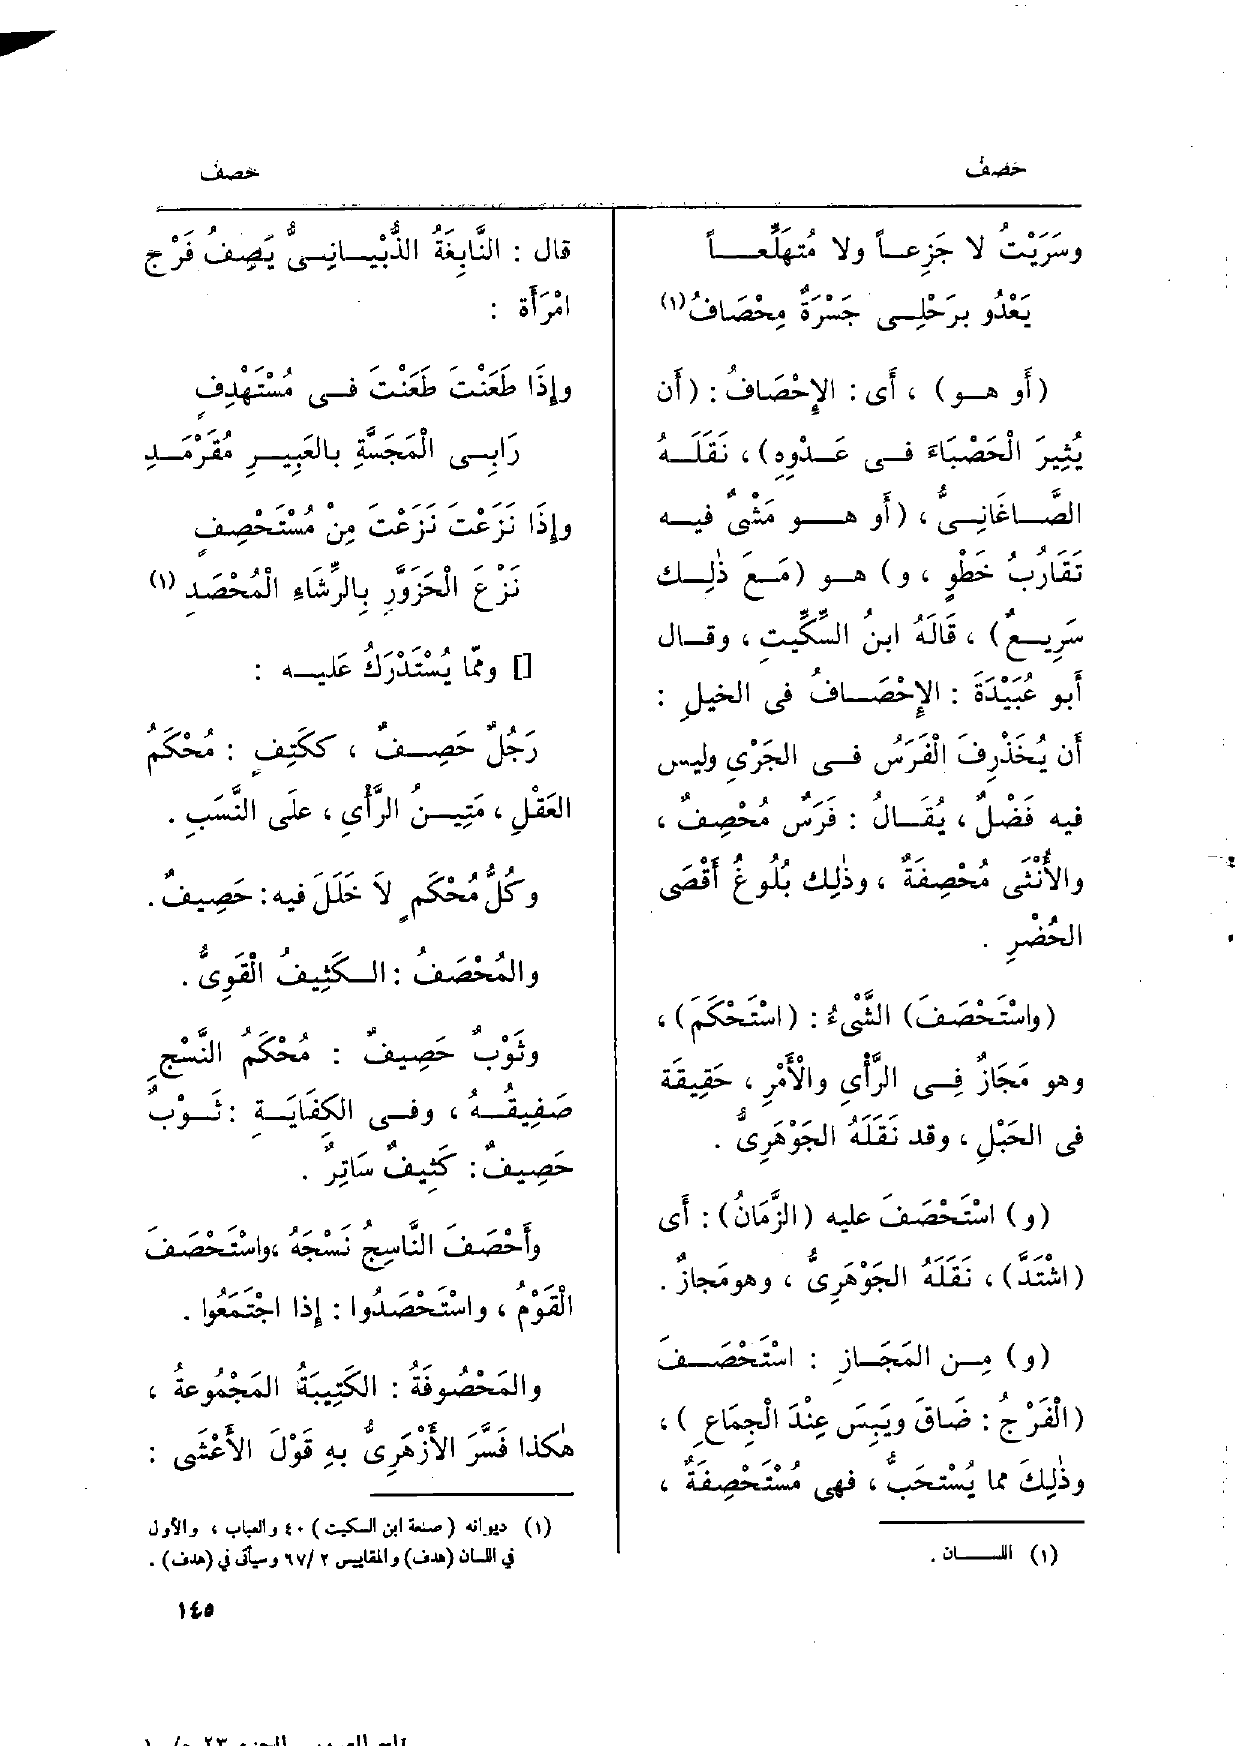 خصف
خصف
وسَرَيْتُ لا جَزِعــاً ولا مُتهَلِّعــــاً
يَعْدُو بِرَحْلِــى جَسْرَةٌ مِحْصَافُ(١)
(أو هــو) ، أى : الإِحْصَافُ : (أن
يُثِيرَ الْحَصْبَاءَ فــى عَــدْوِه) ، نَقَلَــهُ
الصَّــاغَانِــىُّ ، (أو هـــو مَشْىٌ فيــه
تَقَارُبُ خَطْوٍ ، و) هــو (مَــعَ ذٰلِــك
سَرِيــعٌ) ، قَالَهُ ابنُ السِّكِّيتِ ، وقــال
أبو عُبَيْدَةَ : الإِحْصَــافُ فى الخيلِ :
أن يُخَذْرِفَ الْفَرَسُ فــى الجَرْىِ وليس
فيه فَضْلٌ ، يُقَــالُ : فَرَسٌ مُحْصِفٌ ،
والأُنْثَى مُحْصِفَةٌ ، وذٰلِك بُلُوغُ أَقْصَى
الحُضْرِ .
(واسْتَحْصَفَ) الشَّىْءُ : (اسْتَحْكَمَ) ،
وهو مَجَازٌ فِــى الرَّأْىِ والأَمْرِ ، حَقِيقَة
فى الحَبْلِ ، وقد نَقَلَهُ الجَوْهَرِىُّ .
(و) اسْتَحْصَفَ عليه (الزَّمَانُ) : أى
(اشْتَدَّ) ، نَقَلَهُ الجَوْهَرِىُّ ، وهو مَجازٌ .
(و) مِــن المَجَــازِ : اسْتَحْصَــفَ
(الْفَرْجُ : ضَاقَ ويَبِسَ عِنْدَ الْجِمَاعِ ) ،
وذٰلِكَ مما يُسْتَحَبُّ ، فهى مُسْتَحْصِفَةٌ ،
(١) اللــــان .
قال : النَّابِغَةُ الذُّبْيــانِــىُّ يَصِفُ فَرْج
امْرَأَة :
وإِذَا طَعَنْتَ طَعَنْتَ فــى مُسْتَهْدِفٍ
رَابِــى الْمَجَسَّةِ بالعَبِيــرِ مُقَرْمَــدِ
وإِذَا نَزَعْتَ نَزَعْتَ مِنْ مُسْتَحْصِفٍ
نَزْعَ الْحَزَوَّرِ بِالرِّشَاءِ الْمُحْصَدِ (١)
[] ومّما يُسْتَدْرَكُ عَليــه :
رَجُلٌ حَصِــفٌ ، ككَتِفٍ : مُحْكَمُ
العَقْلِ ، مَتِيــنُ الرَّأْىِ ، علَى النَّسَبِ .
وكُلُّ مُحْكَمٍ لاَ خَلَلَ فيه : حَصِيفٌ .
والمُحْصَفُ : الــكَثِيفُ الْقَوِىُّ .
وثَوْبٌ حَصِيفٌ : مُحْكَمُ النَّسْجِ
صَفِيقــهُ ، وفــى الكِفَايَــةِ : ثَــوْبٌ
حَصِيفٌ : كَثِيفٌ سَاتِرٌ .
وأَحْصَفَ النَّاسِجُ نَسْجَهُ ، واسْتَحْصَفَ
الْقَوْمُ ، واسْتَحْصَدُوا : إذا اجْتَمَعُوا .
والمَحْصُوفَةُ : الكَتِيبَةُ المَجْمُوعَةُ ،
هٰكذا فَسَّرَ الأَزْهَرِىُّ بهِ قَوْلَ الأَعْشَى :
(١) ديوانه (صنعة ابن السكيت) ٤٠ والعباب ، والأول
في اللسان (هدف) والمقاييس ٢ /٦٧ وسيأتى في (هدف) .
١٤٥